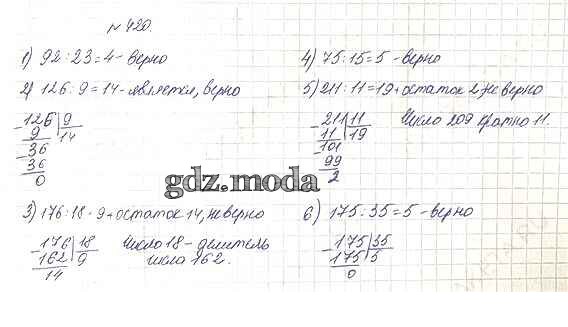 № 420.
1) 92 : 23 = 4 - верно
2) 126 : 9 = 14 - является, верно
126 | 9
9 | 14
36
36
0
3) 176 : 18 - 9 + остаток 14, неверно
176 | 18
162 | 9
14
Число 18 - делитель
числа 162.
4) 75 : 15 = 5 - верно
5) 211 : 11 = 19 + остаток 2, неверно
211 | 11
11 | 19
101
99
2
Число 209 кратно 11.
6) 175 : 35 = 5 - верно
175 | 35
175 | 5
0
gdz.moda